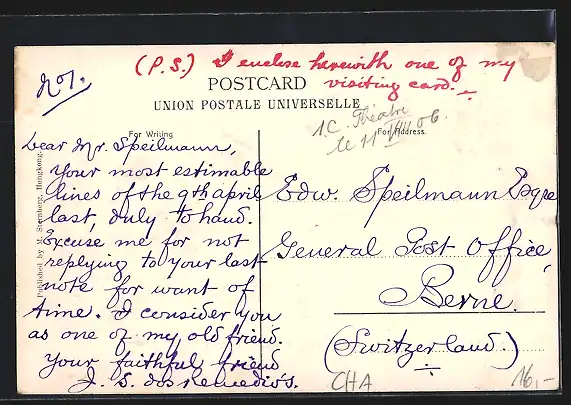 No 1.
(P.S.) I enclose herewith one of my
visiting card.
POSTCARD
UNION POSTALE UNIVERSELLE
1 C. Théatre
le 11 VII 06.
For Writing
For Address.
Dear Mr. Speilmann,
Your most estimable
lines of the 9th april
last, duly to hand.
Excuse me for not
replying to your last
note for want of
time. I consider you
as one of my old friend.
Your faithful friend
J. S. dos Remedios.
Edw. Speilmann Esqre
General Post Office,
Berne.
(Switzerland.)
Published by M. Sternberg, Hongkong
CHA
16,-